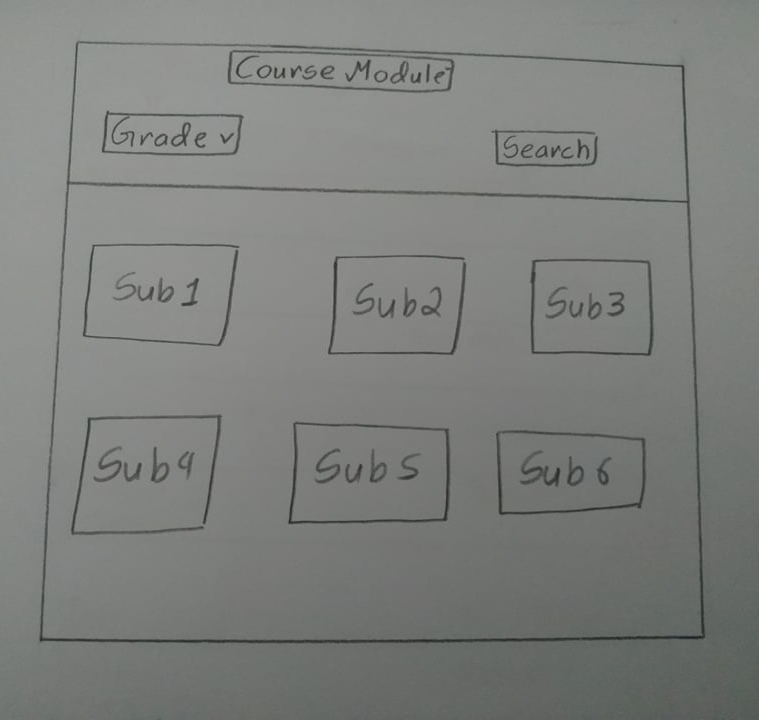 Course Module
Grade v
Search
Sub1
Sub2
Sub3
Sub4
Sub5
Sub6